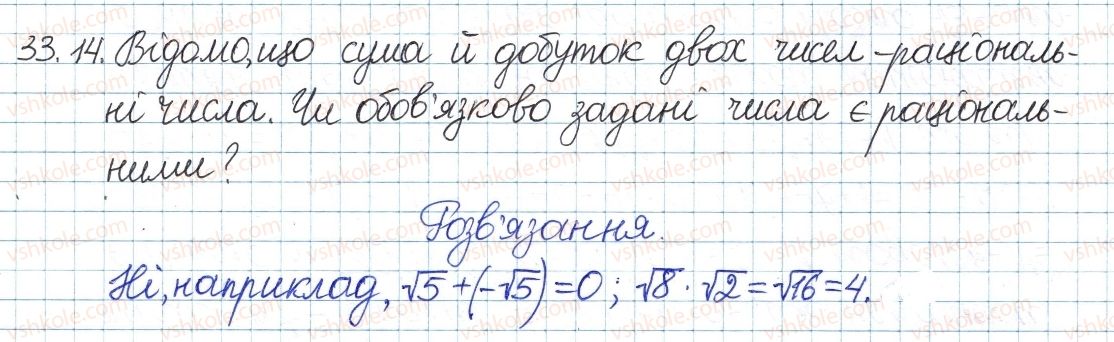 33.14. Відомо, що сума й добуток двох чисел – раціональ-
ні числа. Чи обов'язково задані числа є раціональ-
ними?
Розв'язання.
Ні, наприклад, √5 + (-√5) = 0; √8 · √2 = √16 = 4.